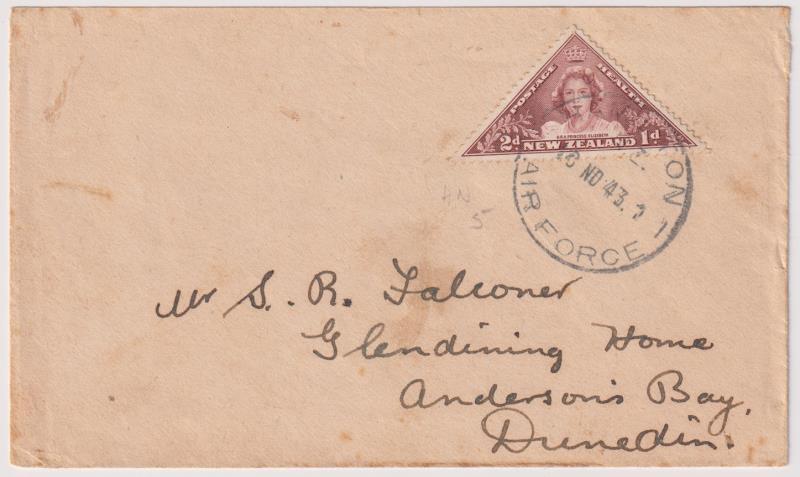 POSTAGE HEALTH
H.R.H. PRINCESS ELIZABETH
2d NEW ZEALAND 1d
TON 1
NO 43
AIR FORCE
AN
5
Mr S. R. Falconer
Glendining Home
Anderson's Bay,
Dunedin.